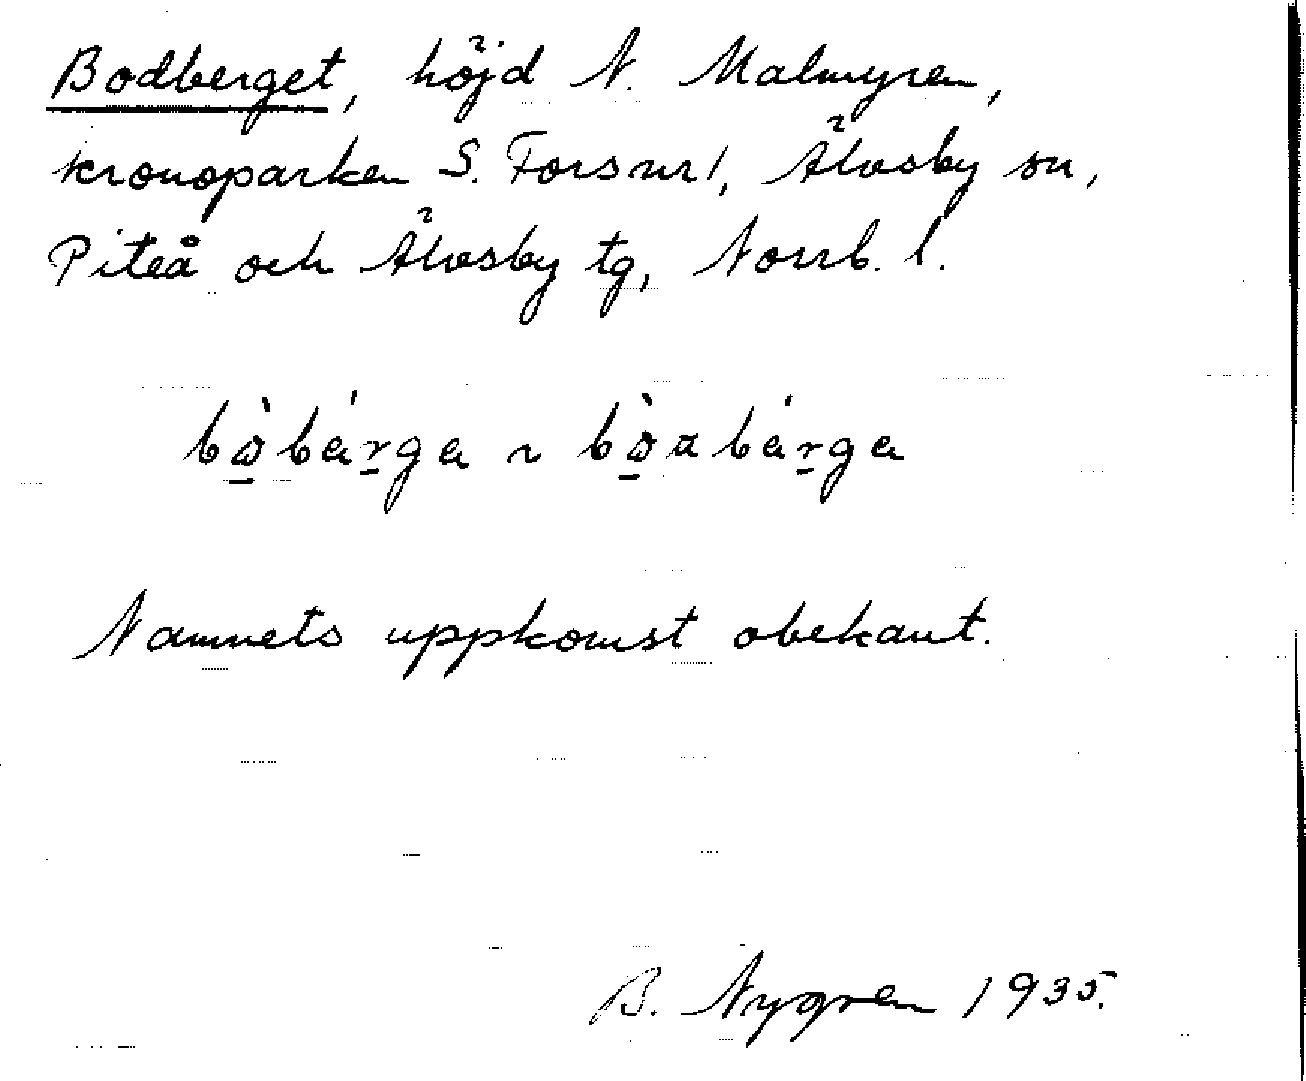 Bodberget, höjd N. Malmyren,
kronoparken S. Forsnr 1, Älvsby sn,
Piteå och Älvsby tg, Norrb. l.
bò̲bárga ~ bò̲abárga
Namnets uppkomst obekant.
B. Nygren 1935.